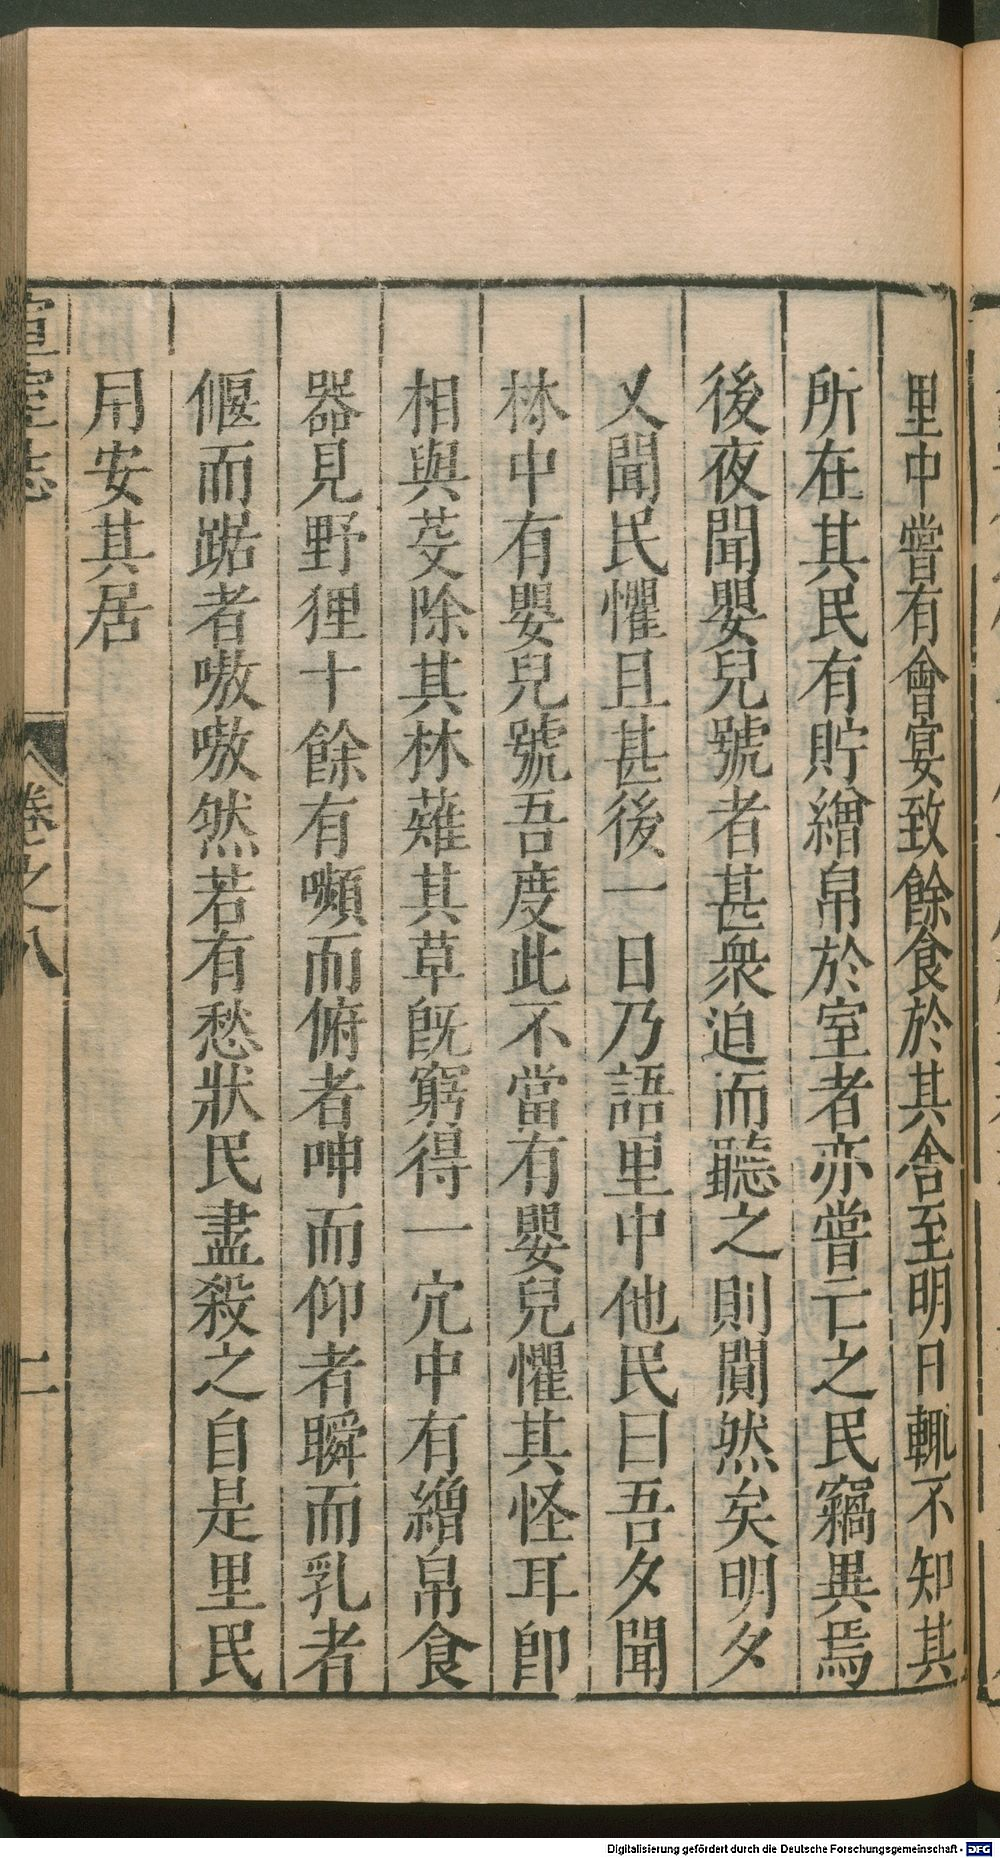 里中嘗有會宴致餘食於其舎至明日輒不知其
所在其民有貯繒帛於室者亦嘗亡之民竊異焉
後夜聞嬰兒號者甚衆迫而聽之則闃然矣明夕
又聞民懼且甚後一日乃語里中他民曰吾夕聞
林中有嬰兒號吾度此不當有嬰兒懼其怪耳卽
相與芟除其林薙其草旣窮得一宂中有繒帛食
器見野狸十餘有嚬而俯者呻而仰者瞬而乳者
偃而踞者嗷嗷然若有愁狀民盡殺之自是里民
用安其居
宣室志
卷之八
二
Digitalisierung gefördert durch die Deutsche Forschungsgemeinschaft - DFG